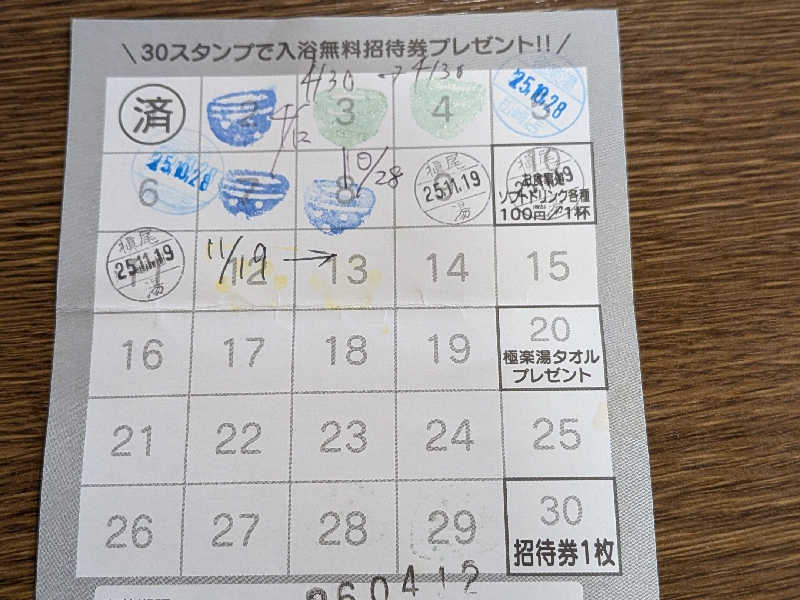 \ 30スタンプで入浴無料招待券プレゼント!! /
4/30 → 4/30
済 2 3 4 5
25.10.28
4/12
6 7 8 9
25.10.28
10/28
槇尾 25.11.19 湯
槇尾
ソフトドリンク各種
100円/1杯
槇尾 25.11.19 湯
11/19 →
12 13 14 15
16 17 18 19 20
極楽湯タオル
プレゼント
21 22 23 24 25
26 27 28 29 30
招待券1枚
260412